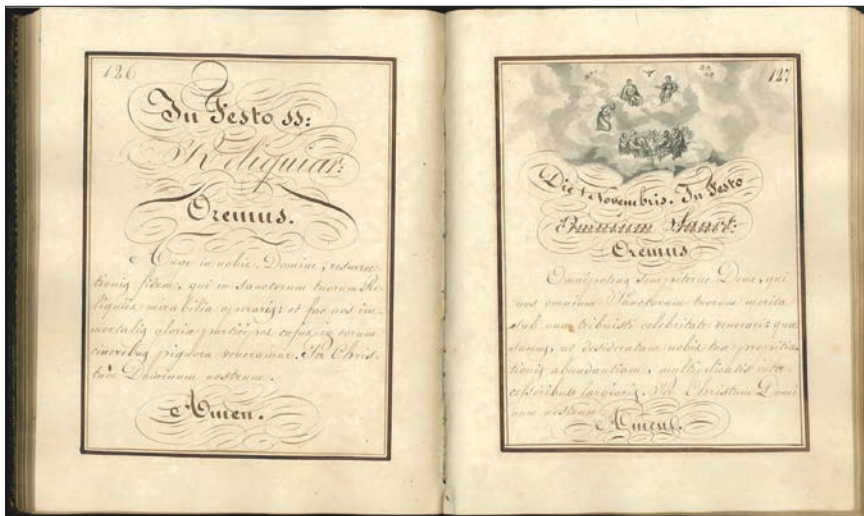 126
In Festo SS:
Reliquiar:
Oremus.
Auge in nobis, Domine, resurrec-
tionis fidem, qui in Sanctorum tuorum Re-
liquiis mirabilia operaris: et fac nos im-
mortalis gloria participes cujus in eorum
cineribus pignora veneramur. Per Chris-
tum Dominum nostrum.
Amen.
127
Die 1 Novembris. In Festo
Omnium Sanct:
Oremus
Omnipotens sempiterne Deus, qui
nos omnium Sanctorum tuorum merita
sub una tribuisti celebritate venerari: quæ
sumus, ut desideratam nobis tuæ propitia
tionis abundantiam, multiplicatis inter-
cessoribus largiaris. Per Christum Domi
num nostrum.
Amen.